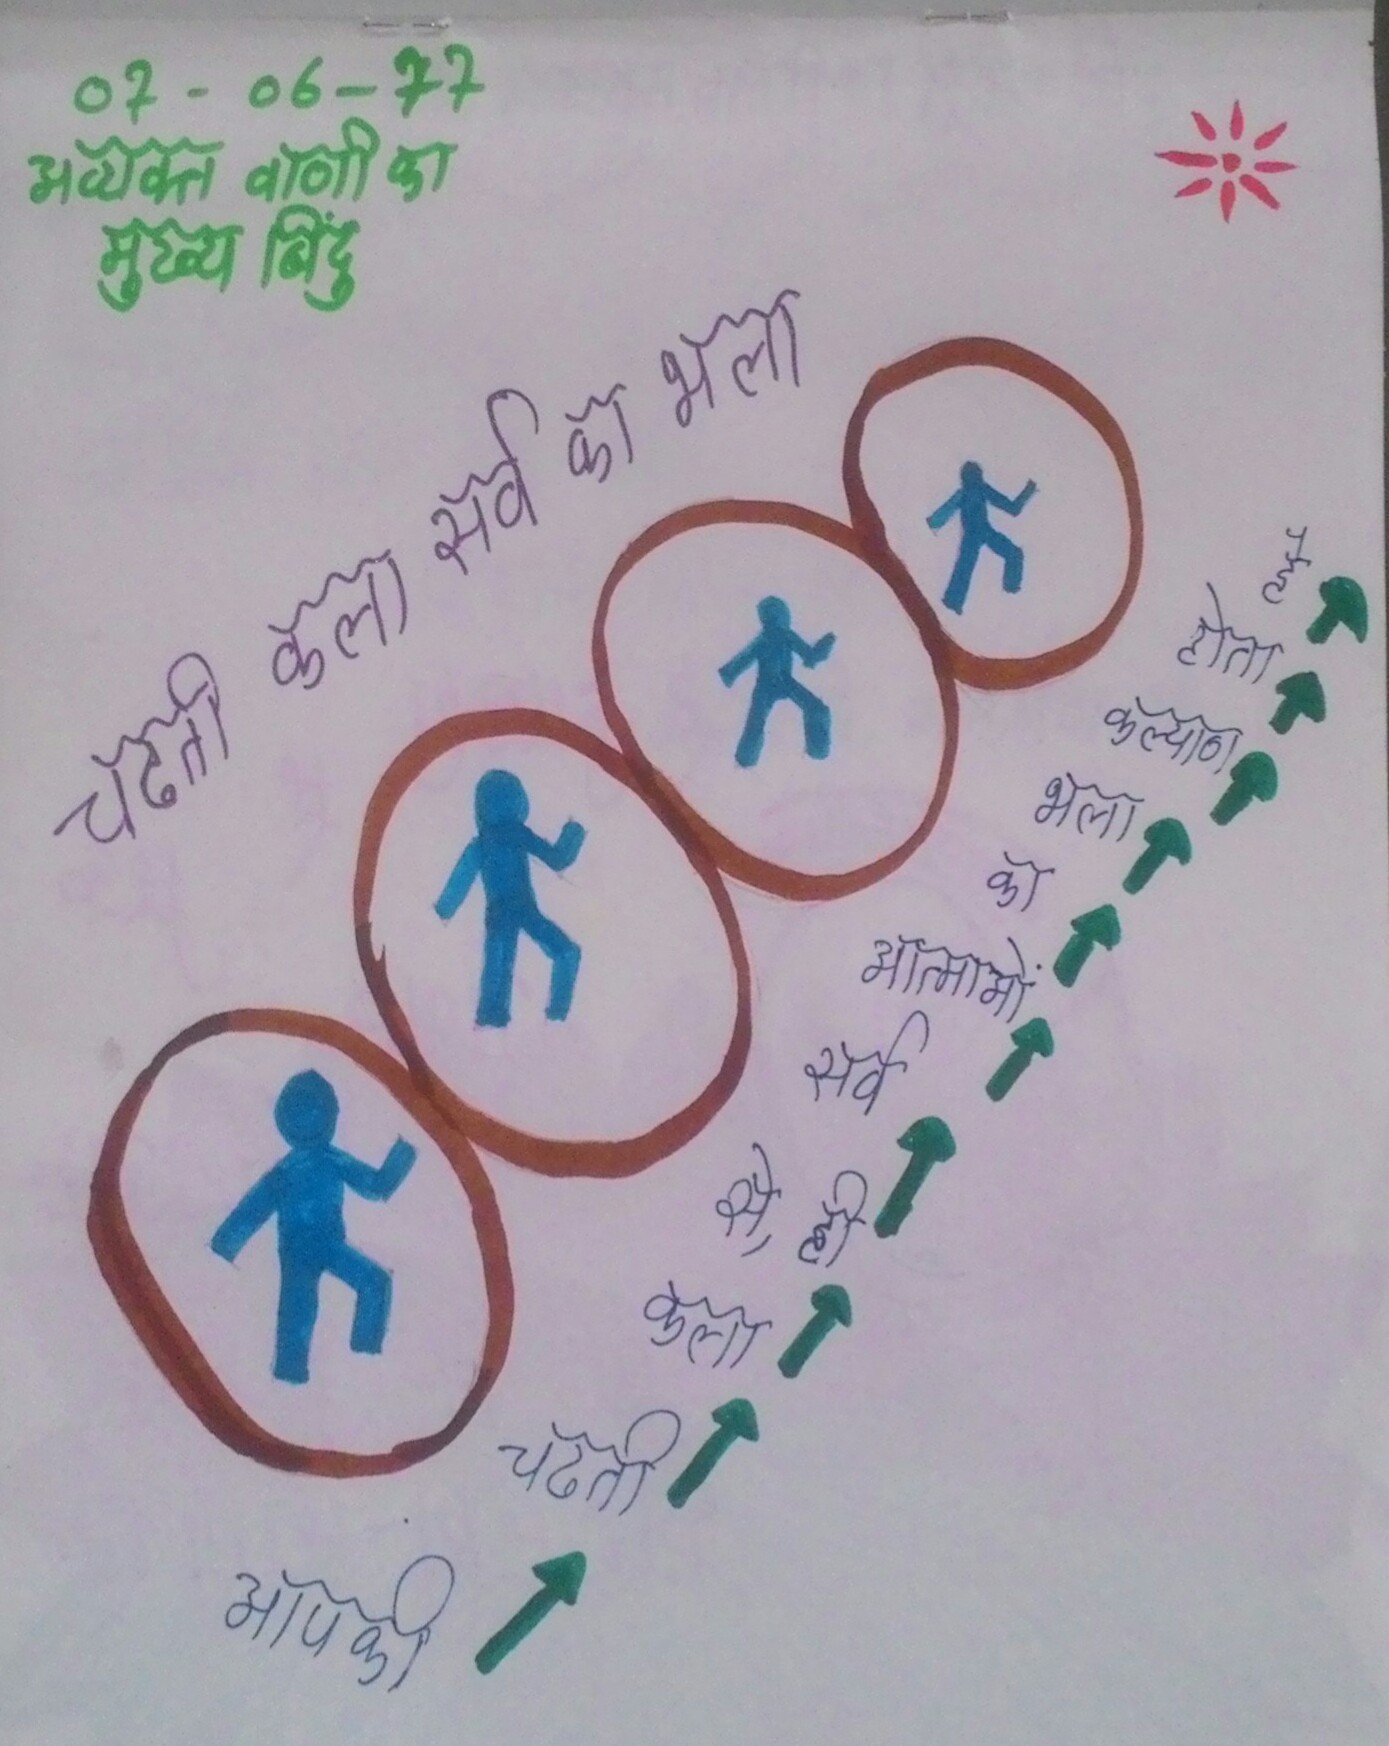 07-06-77
अव्यक्त वाणी का
मुख्य बिंदु
चढती कला सर्व का भला
आपकी चढती कला से ही सर्व आत्माओं का भला कल्याण होता है